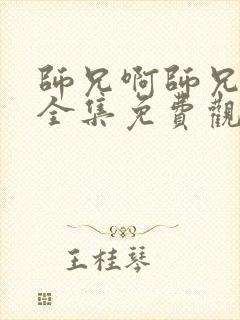 師兄啊師兄
全集免費觀
王桂琴